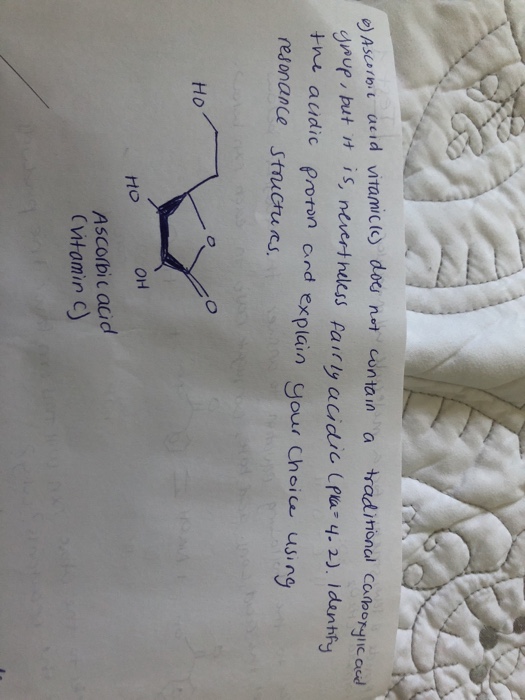 e) Ascorbic acid vitamic(c) does not contain a traditional carboxylic acid
group, but it is, nevertheless fairly acidic (pka = 4.2). Identify
the acidic proton and explain your choice using
resonance structures.
HO
O
O
HO
OH
Ascorbic acid
(vitamin C)